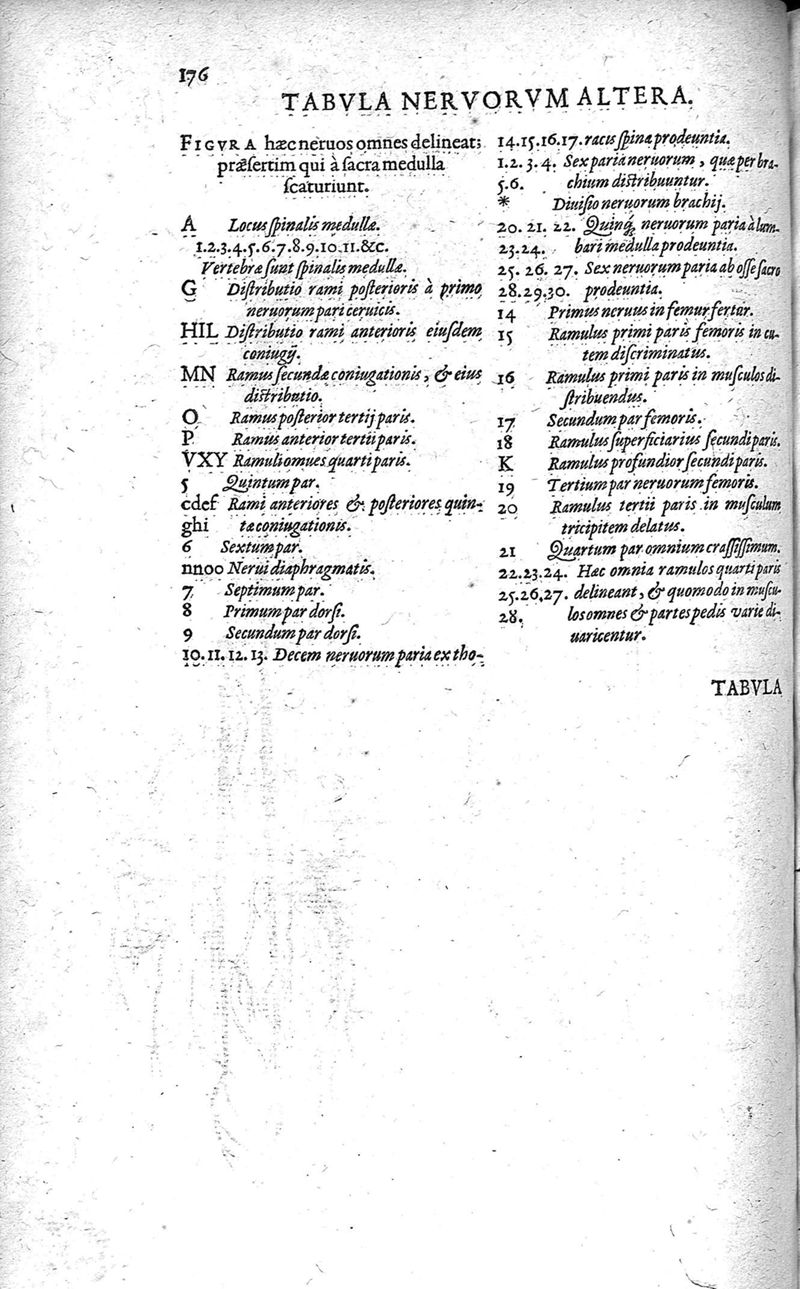 176
TABVLA NERVORVM ALTERA.
FIGVRA hæc neruos omnes delineat;
præsertim qui à sacra medulla
scaturiunt.
A Locus spinalis medullæ.
1.2.3.4.5.6.7.8.9.10.11.&c.
Vertebræ sunt spinalis medullæ.
G Distributio rami posterioris à primo
neruorum pari ceruicis.
HIL Distributio rami anterioris eiusdem
coniugij.
MN Ramus secundæ coniugationis, & eius
distributio.
O Ramus posterior tertij paris.
P Ramus anterior tertii paris.
VXY Ramuli omues quarti paris.
5 Quintum par.
cdef Rami anteriores & posteriores quin-
ghi tæ coniugationis.
6 Sextum par.
nnoo Nerui diaphragmatis.
7 Septimum par.
8 Primum par dorsi.
9 Secundum par dorsi.
10.11.12.13. Decem neruorum paria ex tho-
14.15.16.17. racis spina prodeuntia.
1.2.3.4. Sex paria neruorum, quæ per bra-
5.6. chium distribuuntur.
* Diuisio neruorum brachij.
20.21.22. Quinq; neruorum paria à lum-
23.24. bari medulla prodeuntia.
25.26.27. Sex neruorum paria ab osse sacro
28.29.30. prodeuntia.
14 Primus neruus in femur fertur.
15 Ramulus primi paris femoris in cu-
tem discriminatus.
16 Ramulus primi paris in musculos di-
stribuendus.
17 Secundum par femoris.
18 Ramulus superficiarius secundi paris.
K Ramulus profundior secundi paris.
19 Tertium par neruorum femoris.
20 Ramulus tertii paris in musculum
tricipitem delatus.
21 Quartum par omnium crassissimum.
22.23.24. Hæc omnia ramulos quarti paris
25.26.27. delineant, & quomodo in muscu-
28. los omnes & partes pedis varie di-
uaricentur.
TABVLA